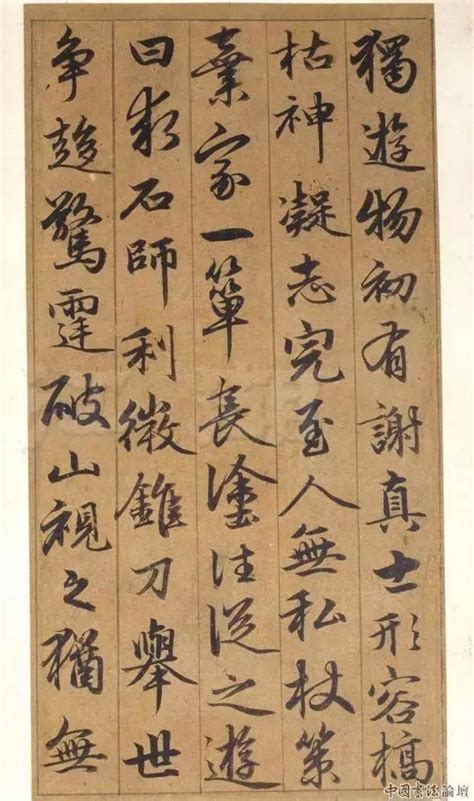 獨遊物初有謝真士形容槁
枯神凝志完至人無私杖策
棄家一簞長塗往從之遊
曰石師利徼錐刀舉世
爭趍驚霆破山視之猶無
中國書法論壇